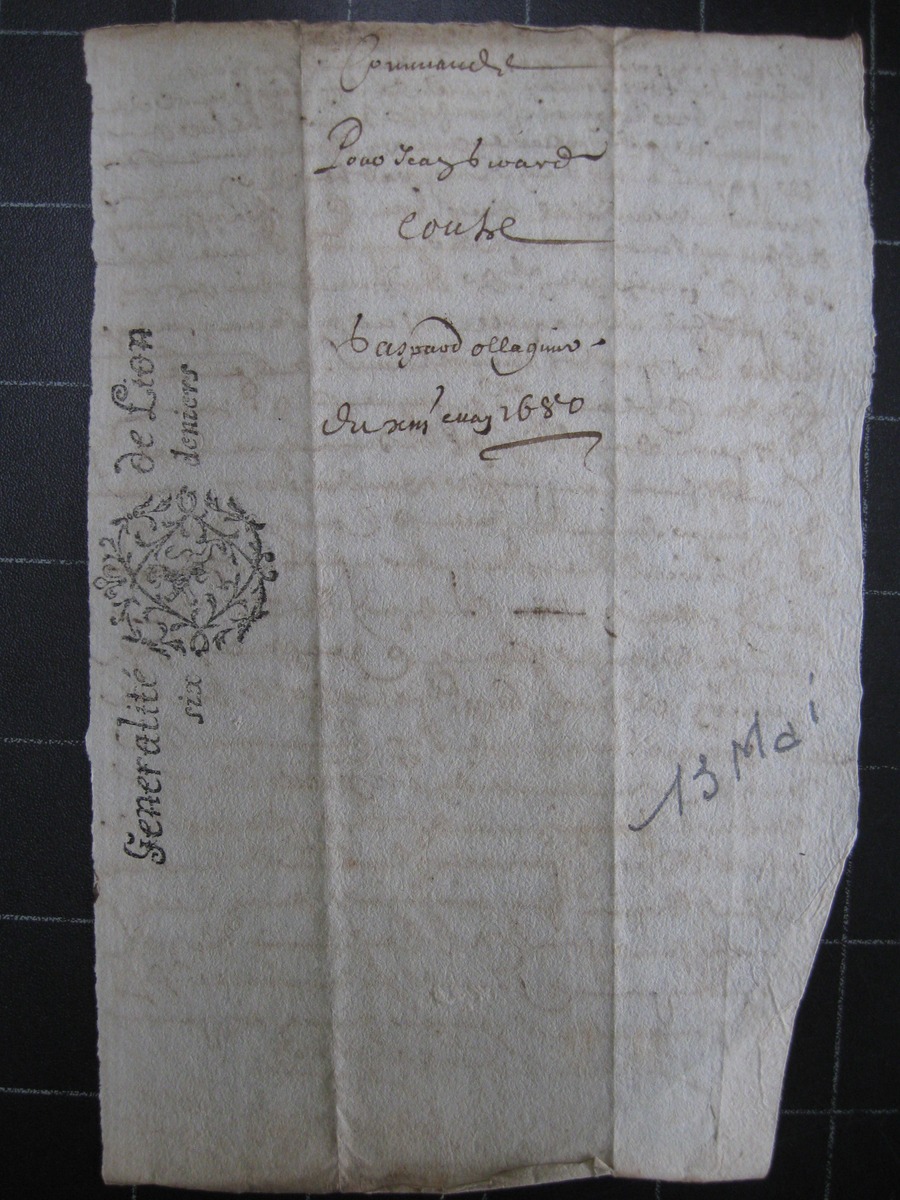 Commande
Pour Jean Girard
contre
Gaspard ollagnier
du xiii may 1680
Generalité de Lion
six deniers
13 Mai